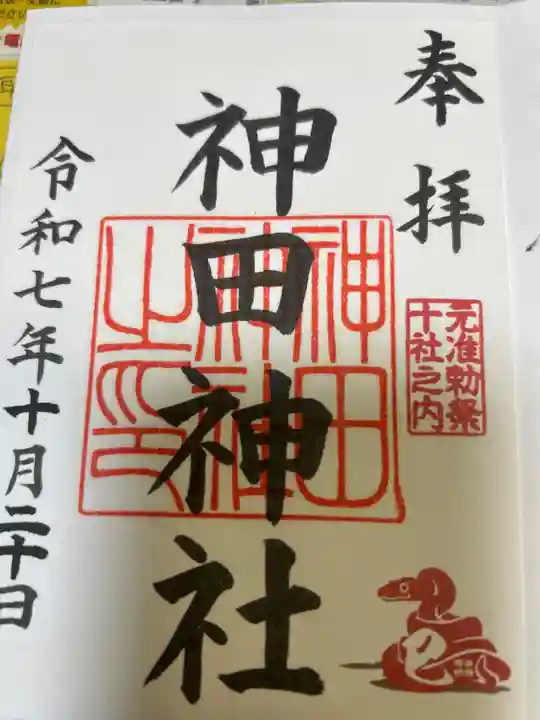 奉拝
元准勅祭
十社之内
神田神社
神田
神社
之印
令和七年十月二十日